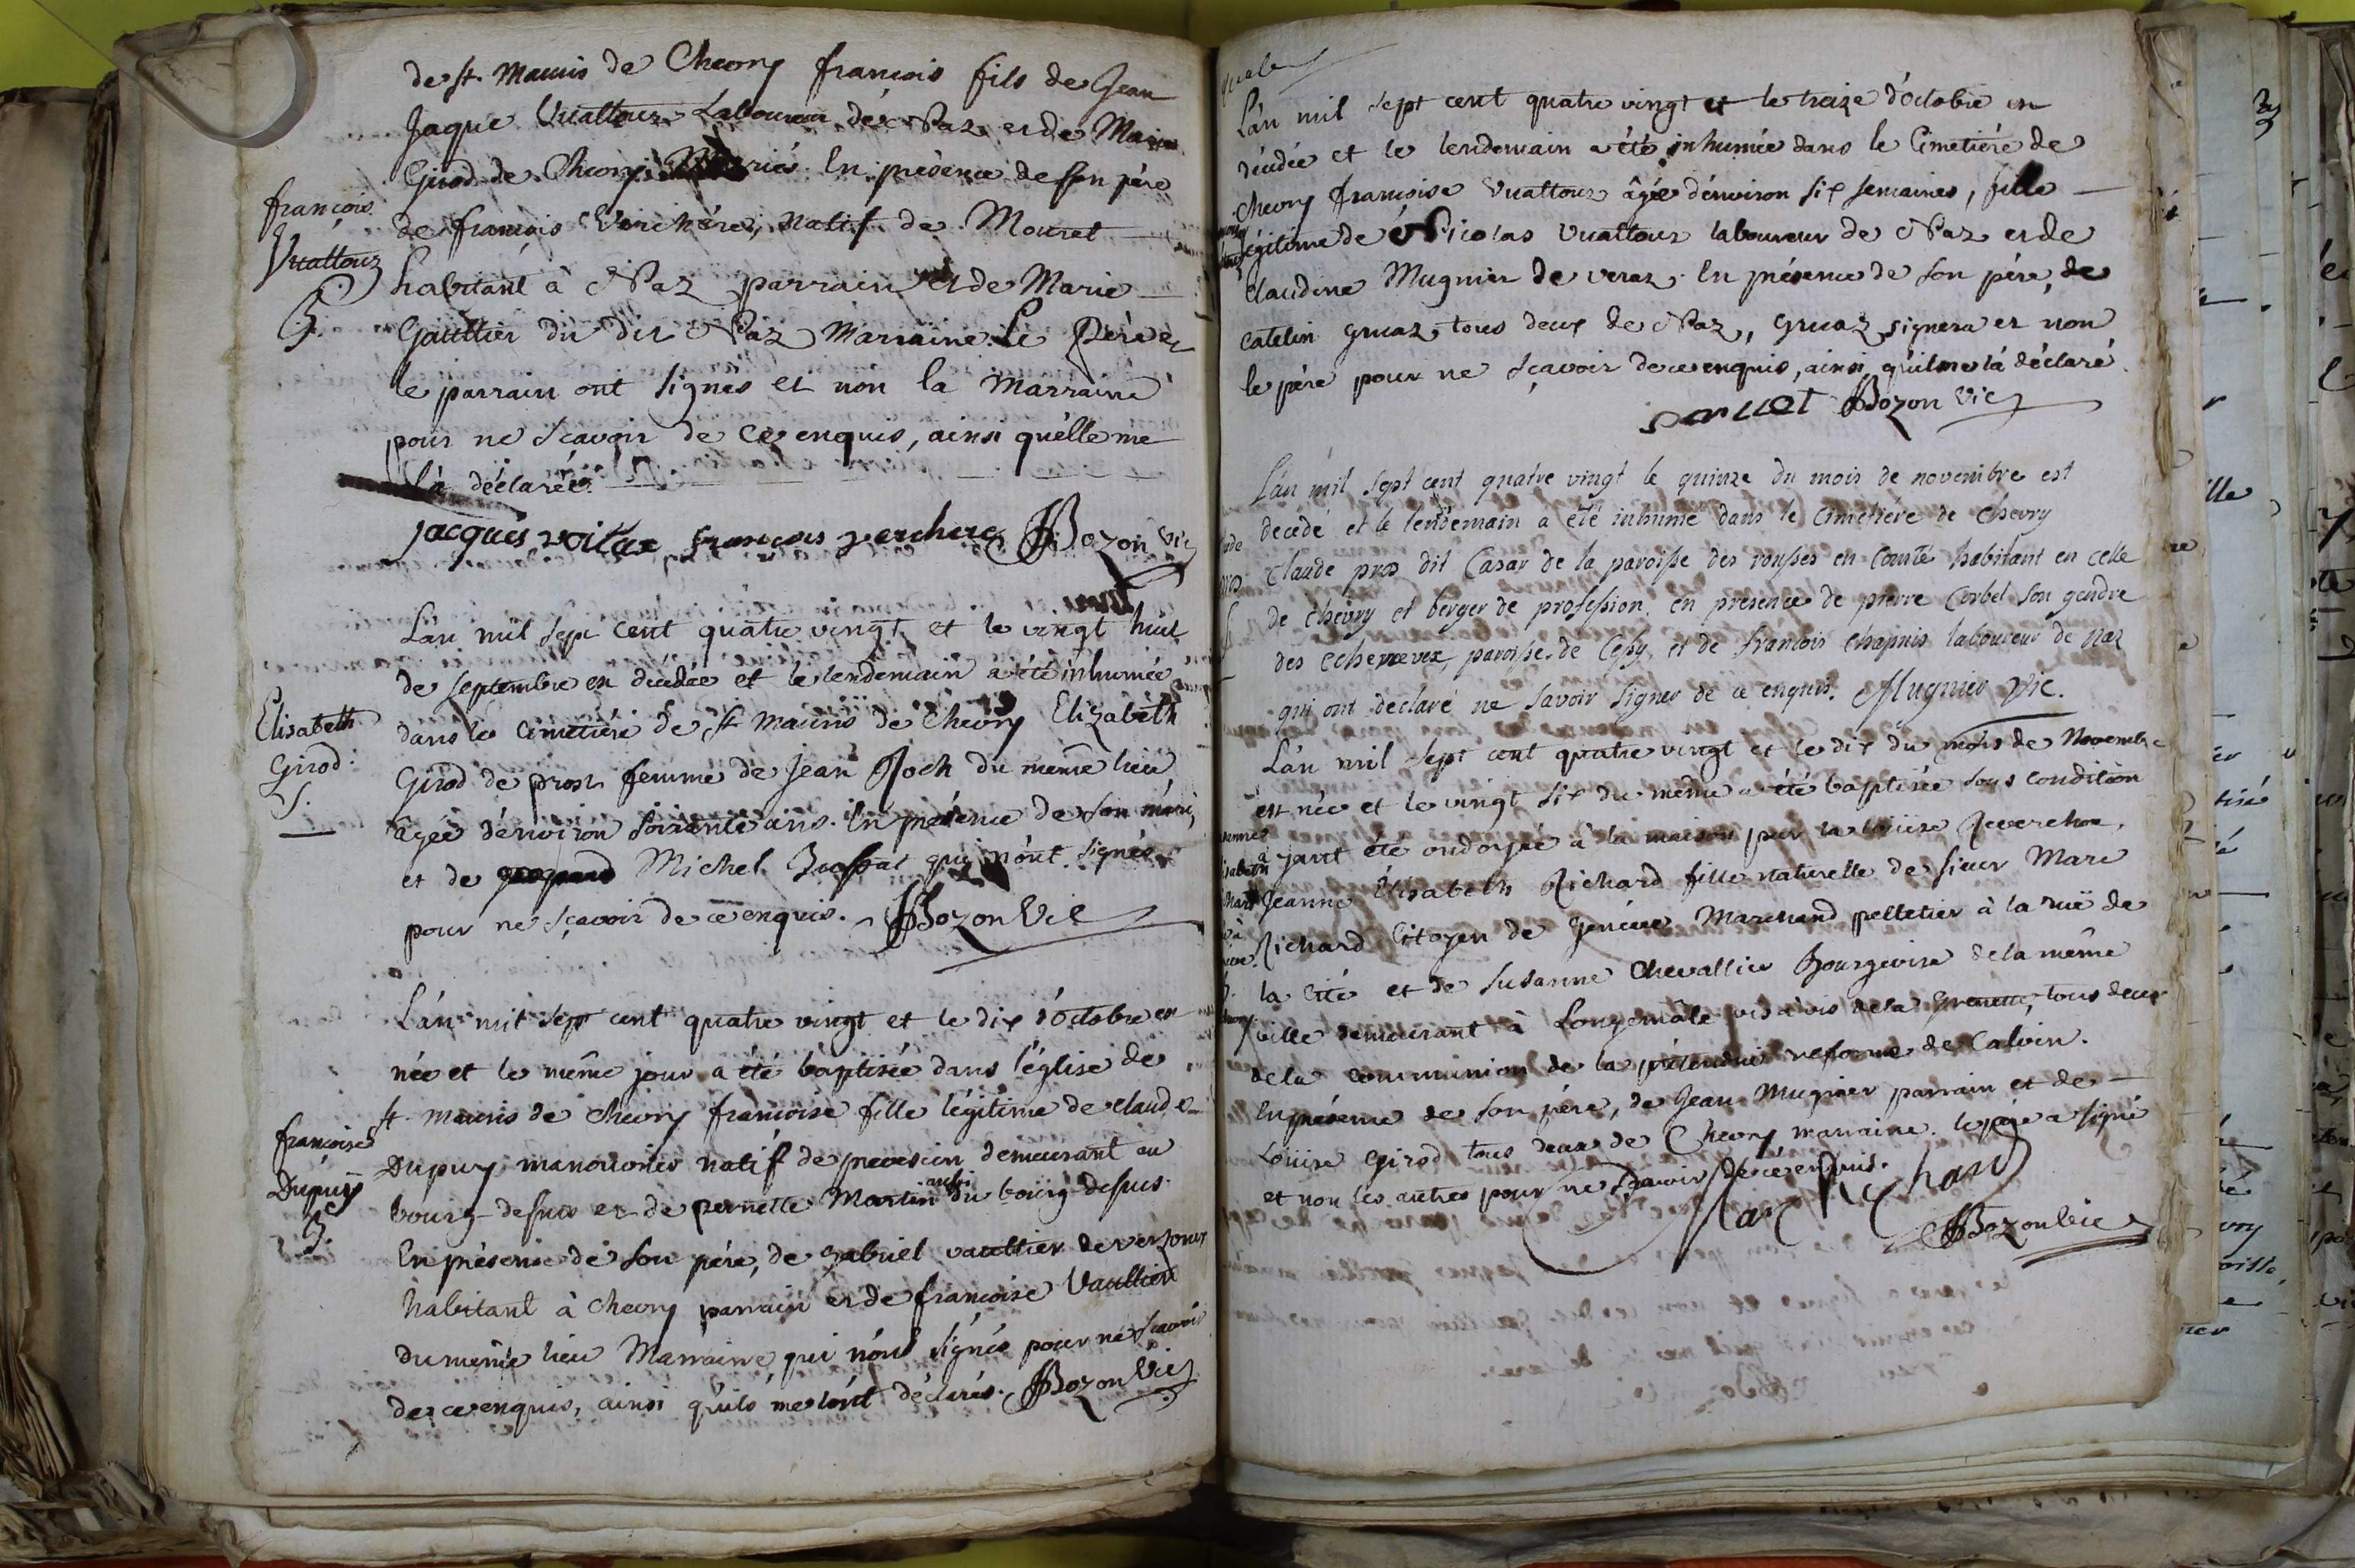 de st. Mauris de Chevry françois fils de Jean
Jaque Vuattoux Laboureur de Naz et de Marie
Girod de Chevry Mariés. En présence de son père
de françois Verchére, natif de Mouret
habitant à Naz parrain et de Marie
Gaultier du dit Naz Marraine. Le Père et
le parrain ont signés et non la Marraine
pour ne sçavoir de ce enquis, ainsi qu'elle me
l'a déclarée.
françois
Vuattoux
B.
jacques françois verchere Bozon Vic
L'an mil sept cent quatre vingt et le vingt huit
de septembre est décédée et le lendemain a été inhumée
dans le Cimetière de st Mauris de Chevry Elizabeth
Girod de prost femme de Jean Roch du même lieu
agée d'environ soixante ans. En présence de son mari,
et de Michel qui n'ont signés
pour ne sçavoir de ce enquis. Bozon Vic
Elisabeth
Girod.
S.
L'an mil sept cent quatre vingt et le dix d'Octobre est
née et le même jour a été baptisée dans l'église de
st. mauris de Chevry françoise fille légitime de claude
Dupuy manouvrier natif de demeurant au
bourg-dessus et de pernette Martin aussi du bourg-dessus.
En présence de son père, de gabriel vaultier de versonex
habitant à chevry parrain et de françoise Vaultier
du même lieu Marraine, qui n'ont signés pour ne sçavoir
de ce enquis, ainsi qu'ils me l'ont déclarés. Bozon Vic
françoise
Dupuy
B.
L'an mil sept cent quatre vingt et le treize d'Octobre est
décédée et le lendemain a été inhumée dans le Cimetière de
Chevry françoise Vuattoux âgée d'environ six semaines, fille
légitime de Nicolas Vuattoux laboureur de Naz et de
Claudine Mugnier de veraz. En présence de son père, de
Catelin gruaz, tous deux de Naz, gruaz signera et non
le père pour ne sçavoir de ce enquis, ainsi qu'il me l'a déclaré.
Bozon Vic
L'an mil sept cent quatre vingt le quinze du mois de novembre est
decedé et le lendemain a été inhumé dans le cimetière de Chevry
Claude pros dit Casar de la paroisse des rousses en Comté habitant en celle
de chevry et berger de profession. en presence de pierre Corbet son gendre
des echenevex, paroisse de Cessy, et de françois Chapuis laboureur de Naz
qui ont declaré ne savoir signer de ce enquis. Mugnier Vic.
L'an mil sept cent quatre vingt et le dix du mois de Novembre
est née et le vingt six du même a été baptisée sous condition
ayant été ondoyée à la maison par la loüise Reverchon,
Jeanne Elisabeth Richard fille naturelle de sieur Marc
Richard Citoyen de Genéve Marchand pelletier à la ruë de
la Cité et de Susanne Chevallier Bourgeoise de la même
ville demeurant à Longemâle vis à vis de la grenette, tous deux
de la communion de la prétendüe reforme de Calvin.
En présence de son père, de Jean Mugnier parrain et de
Loüise Girod tous deux de Chevry marraine. le père a signé
et non les autres pour ne sçavoir de ce enquis.
Marc Richard
Bozon Vic